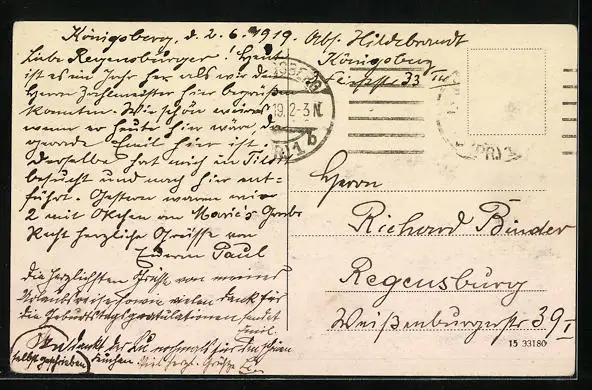 Königsberg, d. 2.6.1919. Abs. Hildebrandt
Königsberg
33 III
Liebe Regensburger! Heut
ist es ein Jahr her als wir den
Herrn Zahlmeister hier begrüßen
konnten. Wie schön wäre es
wenn er heute hier wäre, da
gerade Emil hier ist.
Derselbe hat mich in Tilsit
besucht und nach hier ent-
führt. Gestern waren wir
2 mit Okchen an Marie's Grabe
Recht herzliche Grüsse von
Eurem Paul
die herzlichsten Grüße von meiner
Urlaubsreise sowie vielen Dank für
die Geburtstagsgratulationen sendet
Emil.
selbst geschrieben
19. 2-3 N.
1 b
(PR)
Herrn
Richard Binder
Regensburg
Weißenburgerstr 39 I
15 33180